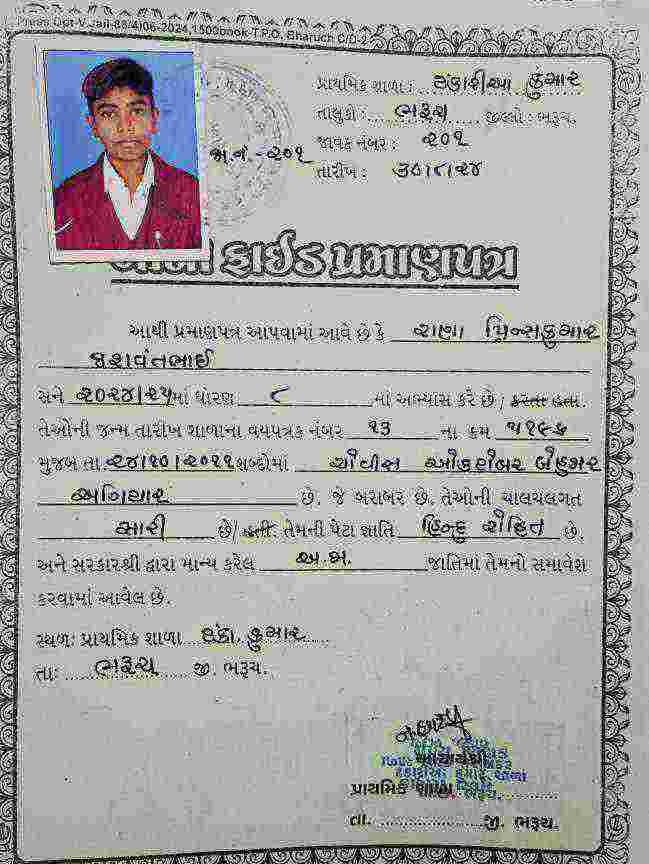 Press Dgt-V.Jail-88/4/06-2024,1500book T.P.O. Bharuch
પ્રાથમિક શાળા : ટંકારીઆ કુમાર
તાલુકો : ભરૂચ જીલ્લો : ભરૂચ.
જાવક નંબર : ૨૦૧
જા.નં.-૨૦૧
તારીખ :
ફાઈડ પ્રમાણપત્ર
આથી પ્રમાણપત્ર આપવામાં આવે છે કે રાણા પ્રિન્સકુમાર
જશવંતભાઈ
સને ૨૦૨૪/૨૫માં ધોરણ ૮ માં અભ્યાસ કરે છે / કરતા હતા.
તેઓની જન્મ તારીખ શાળાના વયપત્રક નંબર ૧૩ ના ક્રમ
મુજબ તા.૨૪/૧૦/૨૦૧૧ શબ્દોમાં ચોવીસ ઓક્ટોબર બેહજાર
અગિયાર છે. જે બરાબર છે. તેઓની ચાલચલગત
સારી છે/ હતી. તેમની પેટા જ્ઞાતિ હિન્દુ રોહિત છે.
અને સરકારશ્રી દ્વારા માન્ય કરેલ અ.જા. જાતિમાં તેમનો સમાવેશ
કરવામાં આવેલ છે.
સ્થળ: પ્રાથમિક શાળા ટંકા. કુમાર
તા: ભરૂચ જી. ભરૂચ.
આચાર્યશ્રી
પ્રાથમિક શાળા
તા. જી. ભરૂચ.